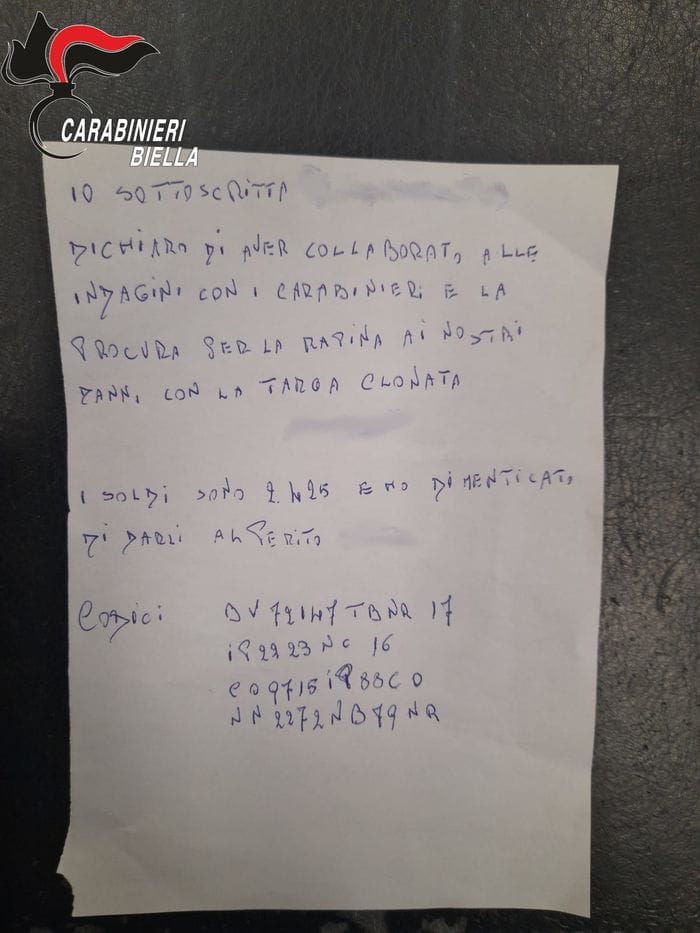 CARABINIERI
BIELLA
IO SOTTOSCRITTA
DICHIARO DI AVER COLLABORATO ALLE
INDAGINI CON I CARABINIERI E LA
PROCURA PER LA RAPINA AI NOSTRI
DANNI CON LA TARGA CLONATA
I SOLDI SONO 2.425 E HO DIMENTICATO
DI DARLI AL PERITO
CODICI
IP2223NC 16
CO9715iP88CO
NN2272NB79NR